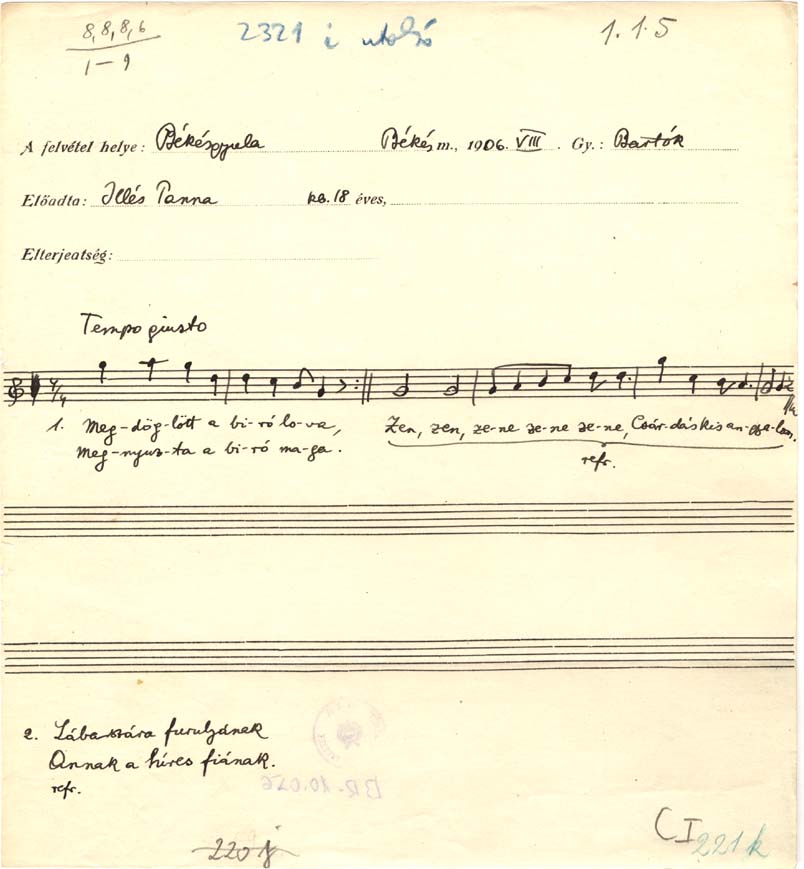 8, 8, 8, 6
1–9
2321 i utolsó
1.1.5
A felvétel helye: Békésgyula Békés m., 1906. VIII. Gy.: Bartók
Előadta: Illés Panna kb. 18 éves,
Elterjedtség:
Tempo giusto
1. Meg-dög-lött a bi-ró lo-va, Zen, zen, ze-ne ze-ne ze-ne, Csár-dás kis an-gya-lom.
Meg-nyuz-ta a bi-ró ma-ga. refr.
2. Lábaszára furulyának
Annak a híres fiának.
refr.
BR-10.026
220 j
C I 221 k